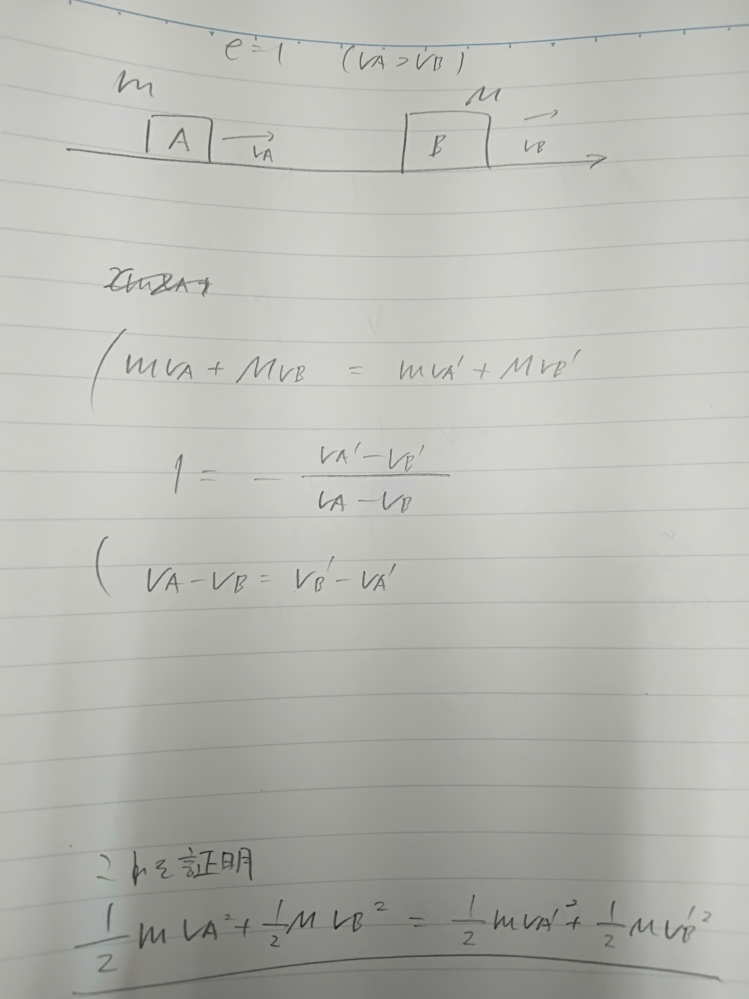 e=1 (vA>vB)
m M
A vA B vB
mvA + MvB = mvA' + MvB'
1 = - (vA'-vB')/(vA-vB)
vA-vB = vB'-vA'
これを証明
1/2 mvA² + 1/2 MvB² = 1/2 mvA'² + 1/2 MvB'²